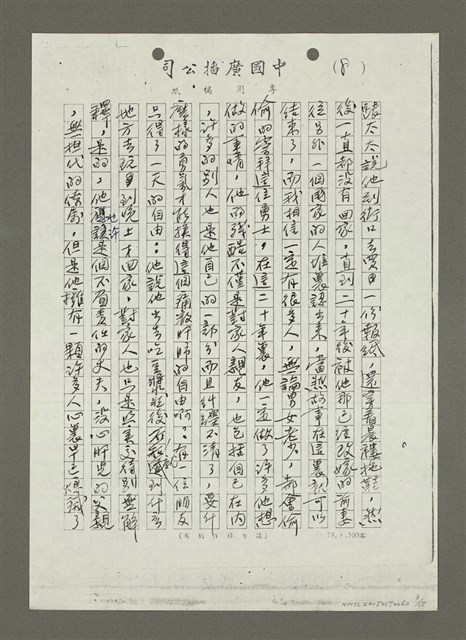 中國廣播公司
(8)
專用稿紙
張太太說他到街口去買一份報紙，還穿著晨褸拖鞋，然
後一直都沒有回家，直到二十年後被他那已經改嫁的前妻
從另外一個國家的人堆裏認出來，當然故事在這裏就可以
結束了，而我相信一定有很多人，無論男女老少，都會偷
偷的崇拜這位勇士，在這二十年裏，他一定做了許多他想
做的事情，他的殘酷不僅是對家人親友，也包括自己在內
，許多的別人也是他自己的一部分而且糾纏不清了，要什
麼樣的勇氣才能換得這個痛徹肝肺的自由啊。有一位朋友
只得了一天的自由，他說他出去吃
地方去玩到晚上才回家，對家人也只是照實交待別無解
釋，是的，他也許應該是個不負責任的丈夫，沒心肝的父親
，無担代的傢伙，但是他擁有一顆許多人心裏早已
78.3.500本
NMTL20150170060